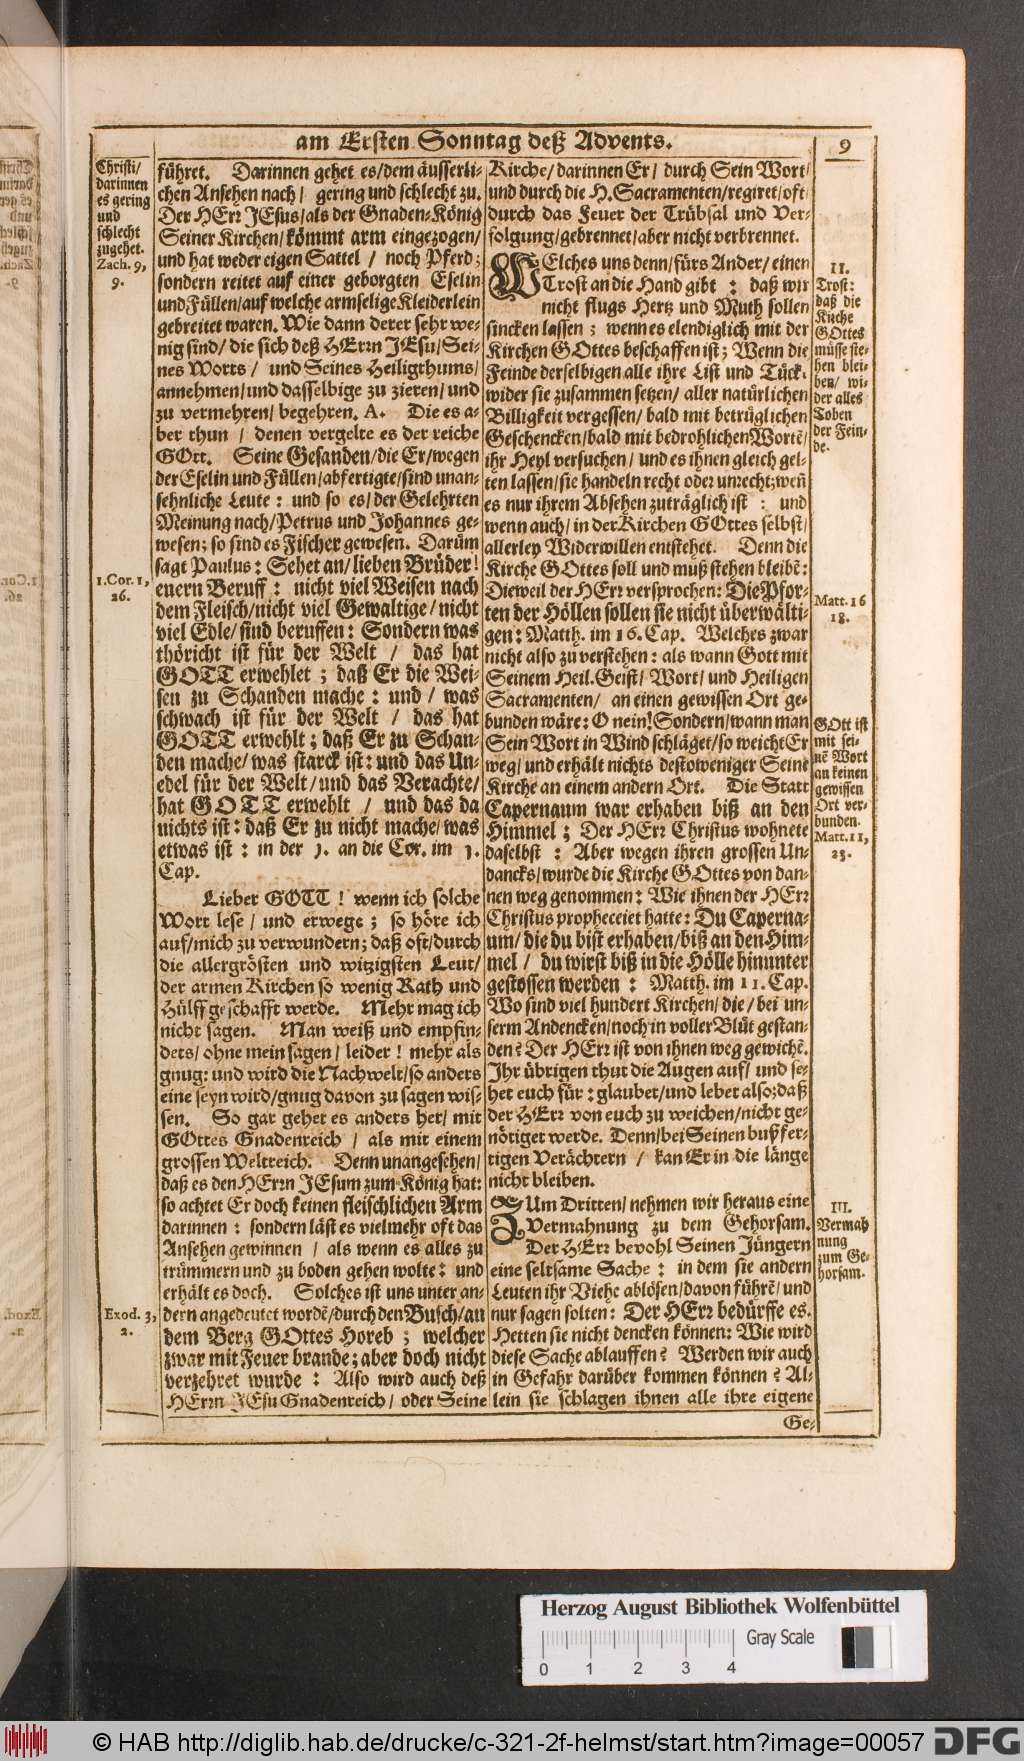 am Ersten Sonntag deß Advents.
9
Christi/
darinnen
es gering
und
schlecht
zugehet.
Zach. 9,
9.
führet. Darinnen gehet es/dem äusserli-
chen Ansehen nach/ gering und schlecht zu.
Der HErr JEsus/als der Gnaden-König
Seiner Kirchen/kömmt arm eingezogen/
und hat weder eigen Sattel / noch Pferd;
sondern reitet auf einer geborgten Eselin
und Füllen/auf welche armselige Kleiderlein
gebreitet waren. Wie dann derer sehr we-
nig sind/ die sich deß HErrn JEsu/Sei-
nes Worts/ und Seines Heiligthums/
annehmen/und dasselbige zu zieren/und
zu vermehren/ begehren. A. Die es a-
ber thun / denen vergelte es der reiche
GOtt. Seine Gesanden/die Er/wegen
der Eselin und Füllen/abfertigte/sind unan-
sehnliche Leute: und so es/der Gelehrten
Meinung nach/Petrus und Johannes ge-
wesen; so sind es Fischer gewesen. Darüm
sagt Paulus: Sehet an/lieben Brüder!
euern Beruff: nicht viel Weisen nach
dem Fleisch/nicht viel Gewaltige/nicht
viel Edle/sind beruffen: Sondern was
thöricht ist für der Welt / das hat
GOTT erwehlet; daß Er die Wei-
sen zu Schanden mache: und/ was
schwach ist für der Welt / das hat
GOTT erwehlt; daß Er zu Schan-
den mache/was starck ist: und das Un-
edel für der Welt/und das Verachte/
hat GOTT erwehlt / und das da
nichts ist: daß Er zu nicht mache/was
etwas ist: in der 1. an die Cor. im 1.
Cap.
Lieber GOTT! wenn ich solche
Wort lese/ und erwege; so höre ich
auf/mich zu verwundern; daß oft/durch
die allergrösten und witzigsten Leut/
der armen Kirchen so wenig Rath und
Hülff geschafft werde. Mehr mag ich
nicht sagen. Man weiß und empfin-
dets/ohne mein sagen/ leider! mehr als
gnug: und wird die Nachwelt/so anders
eine seyn wird/gnug davon zu sagen wis-
sen. So gar gehet es anders her/ mit
GOttes Gnadenreich / als mit einem
grossen Weltreich. Denn unangesehen/
daß es den HErrn JEsum zum König hat:
so achtet Er doch keinen fleischlichen Arm
darinnen: sondern läst es vielmehr oft das
Ansehen gewinnen / als wenn es alles zu
trümmern und zu boden gehen wolte: und
erhält es doch. Solches ist uns unter an-
dern angedeutet wordē/durch den Busch/an
dem Berg GOttes Horeb; welcher
zwar mit Feuer brande; aber doch nicht
verzehret wurde: Also wird auch deß
HErrn JEsu Gnadenreich/ oder Seine
1. Cor. 1,
26.
Exod. 3,
2.
Kirche/darinnen Er/ durch Sein Wort/
und durch die H. Sacramenten/regiret/oft/
durch das Feuer der Trübsal und Ver-
folgung/gebrennet/aber nicht verbrennet.
WElches uns denn/fürs Ander/einen
Trost an die Hand gibt: daß wir
nicht flugs Hertz und Muth sollen
sincken lassen; wenn es elendiglich mit der
Kirchen GOttes beschaffen ist; Wenn die
Feinde derselbigen alle ihre List und Tück/
wider sie zusammen setzen/ aller natürlichen
Billigkeit vergessen/ bald mit betrüglichen
Geschencken/bald mit bedrohlichen Wortē/
ihr Heyl versuchen/ und es ihnen gleich gel-
ten lassen/sie handeln recht oder unrecht; weñ
es nur ihrem Absehen zuträglich ist: und
wenn auch/in der Kirchen GOttes selbst/
allerley Widerwillen entstehet. Denn die
Kirche GOttes soll und muß stehen bleibē:
Dieweil der HErr versprochen: Die Pfor-
ten der Höllen sollen sie nicht überwälti-
gen: Matth. im 16. Cap. Welches zwar
nicht also zu verstehen: als wann Gott mit
Seinem Heil. Geist/ Wort/und Heiligen
Sacramenten/ an einen gewissen Ort ge-
bunden wäre: O nein! Sondern/wann man
Sein Wort in Wind schläget/so weicht Er
weg/und erhält nichts destoweniger Seine
Kirche an einem andern Ort. Die Statt
Capernaum war erhaben biß an den
Himmel; Der HErr Christus wohnete
daselbst: Aber wegen ihren grossen Un-
dancks/wurde die Kirche GOttes von dan-
nen weg genommen: Wie ihnen der HErr
Christus propheceiet hatte: Du Caperna-
um/die du bist erhaben/biß an den Him-
mel / du wirst biß in die Hölle hinunter
gestossen werden: Matth. im 11. Cap.
Wo sind viel hundert Kirchen/die/bei un-
serm Andencken/noch in voller Blüt gestan-
den? Der HErr ist von ihnen weg gewichē.
Ihr übrigen thut die Augen auf/ und se-
het euch für: glaubet/und lebet also; daß
der HErr von euch zu weichen/nicht ge-
nötiget werde. Denn/bei Seinen bußfer-
tigen Verächtern / kan Er in die länge
nicht bleiben.
ZUm Dritten/nehmen wir heraus eine
Vermahnung zu dem Gehorsam.
Der HErr bevohl Seinen Jüngern
eine seltsame Sache: in dem sie andern
Leuten ihr Viehe ablösen/davon führē/und
nur sagen solten: Der HErr bedürffe es.
Hetten sie nicht dencken können: Wie wird
diese Sache ablauffen? Werden wir auch
in Gefahr darüber kommen können? Al-
lein sie schlagen ihnen alle ihre eigene
Ge-
II.
Trost:
daß die
Kirche
GOttes
müsse ste-
hen blei-
ben/ wi-
der alles
Toben
der Fein-
de.
Matt. 16
18.
GOtt ist
mit sei-
nē Wort
an keinen
gewissen
Ort ver-
bunden.
Matt. 11,
23.
III.
Vermah
nung
zum Ge-
horsam.
Herzog August Bibliothek Wolfenbüttel
Gray Scale
0 1 2 3 4
© HAB http://diglib.hab.de/drucke/c-321-2f-helmst/start.htm?image=00057
DFG